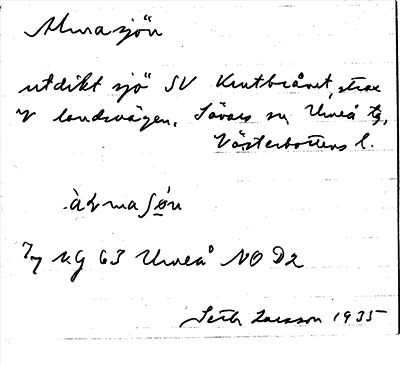 Almasjön
utdikt sjö SV Krutbrånet, strax
V landsvägen. Sävars sn, Umeå tg,
Västerbottens l.
àlmaʃǿn
7/7 KG 63 Umeå NO D2
Seth Larsson 1935